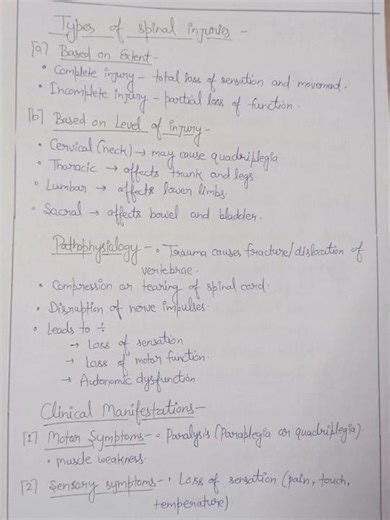 Types of spinal injuries -
[a] Based on Extent -
• Complete injury - total loss of sensation and movement.
• Incomplete injury - partial loss of function.
[b] Based on Level of injury -
• Cervical (neck) → may cause quadriplegia
• Thoracic → affects trunk and legs
• Lumbar → affects lower limbs
• Sacral → affects bowel and bladder.
Pathophysiology - • Trauma causes fracture/dislocation of
vertebrae.
• Compression or tearing of spinal cord.
• Disruption of nerve impulses.
• Leads to ÷
→ Loss of sensation
→ Loss of motor function.
→ Autonomic dysfunction
Clinical Manifestations -
[1] Motor Symptoms - • Paralysis (Paraplegia or quadriplegia)
• muscle weakness.
[2] Sensory symptoms - • Loss of sensation (pain, touch,
temperature).